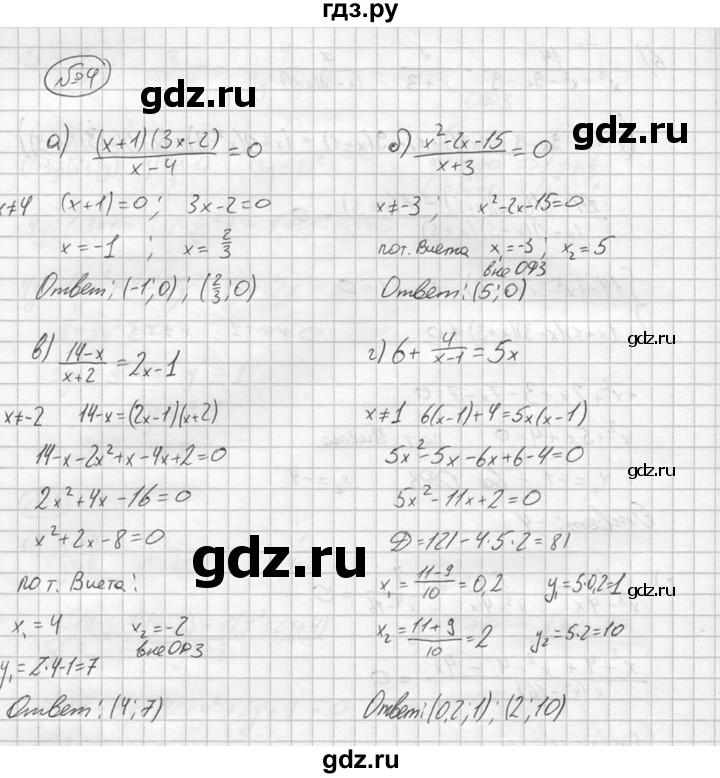 гдз.ру
№4
gdz.ru
gdz.ru
а) (x+1)(3x-2)/(x-4) = 0
x≠4 (x+1)=0; 3x-2=0
x=-1; x=2/3
Ответ: (-1;0); (2/3;0)
б) (x²-2x-15)/(x+3) = 0
x≠-3; x²-2x-15=0
по т. Виета x₁=-3; x₂=5
вне ОДЗ
Ответ: (5;0)
gdz.ru
в) (14-x)/(x+2) = 2x-1
x≠-2 14-x=(2x-1)(x+2)
14-x-2x²+x-4x+2=0
2x²+4x-16=0
x²+2x-8=0
по т. Виета:
x₁=4 x₂=-2
вне ОДЗ
y₁=2·4-1=7
Ответ: (4;7)
г) 6+4/(x-1)=5x
gdz.ru
x≠1 6(x-1)+4=5x(x-1)
5x²-5x-6x+6-4=0
gdz.ru
5x²-11x+2=0
D=121-4·5·2=81
gdz.ru
x₁=(11-9)/10=0,2 y₁=5·0,2=1
gdz.ru
x₂=(11+9)/10=2 y₂=5·2=10
Ответ: (0,2;1); (2;10)
gdz.ru
gdz.ru